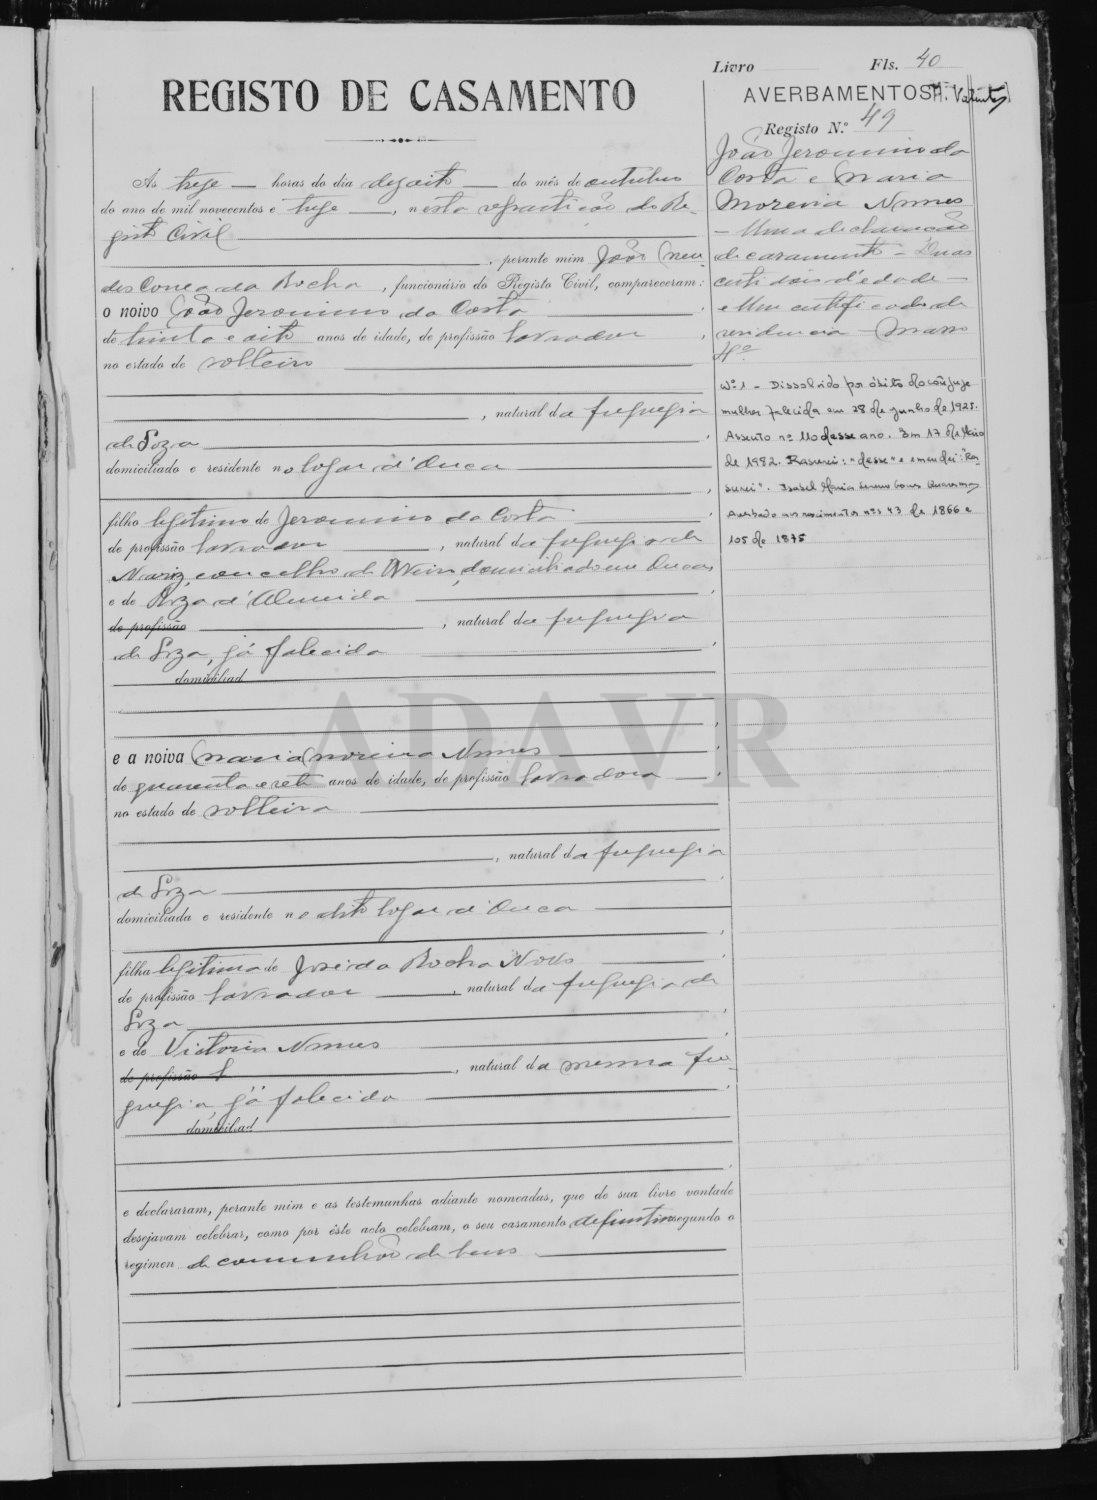 Livro Fls. 40
REGISTO DE CASAMENTO
AVERBAMENTOS
Registo N.º 49
João Jeronimo da
Costa e Maria
Moreira Nunes
- Uma declaração
de casamento - Duas
certidois d'edade -
e Um certificado de
residencia - Masso
Nº 1 - Dissolvido por óbito do cônjuge
mulher falecida em 28 de junho de 1925.
Assento nº 110 desse ano. Em 17 de Maio
de 1982. Rasurei: "desse" e emendei: "Ra-
surei". Isabel Maria
Averbado aos nascimentos nºs 43 de 1866 e
105 de 1875
As treze horas do dia dezoito do mês de outubro
do ano de mil novecentos e treze, nesta repartição do Re-
gisto Civil
, perante mim João Men-
des Correa da Rocha, funcionário do Registo Civil, compareceram:
o noivo João Jeronimo da Costa
de trinta e oito anos de idade, de profissão lavrador,
no estado de solteiro
, natural da freguezia
de Soza,
domiciliado e residente no logar d'Ouca
,
filho legitimo de Jeronimo da Costa,
de profissão lavrador, natural da freguezia de
Nariz, concelho de Aveiro, domiciliado em Ouca,
e de Roza d'Almeida,
de profissão, natural da freguezia
de Soza, já falecida,
domiciliad
,
e a noiva Maria Moreira Nunes,
de quarenta e sete anos de idade, de profissão lavradora,
no estado de solteira
, natural da freguezia
de Soza,
domiciliada e residente no dito logar d'Ouca
,
filha legitima de José da Rocha Novo,
de profissão lavrador, natural da freguezia de
Soza,
e de Victoria Nunes,
de profissão, natural da mesma fre-
guezia, já falecida,
domiciliad
,
e declararam, perante mim e as testemunhas adiante nomeadas, que de sua livre vontade
desejavam celebrar, como por êste acto celebram, o seu casamento definitivo segundo o
regimen de comunhão de bens
ADAVR